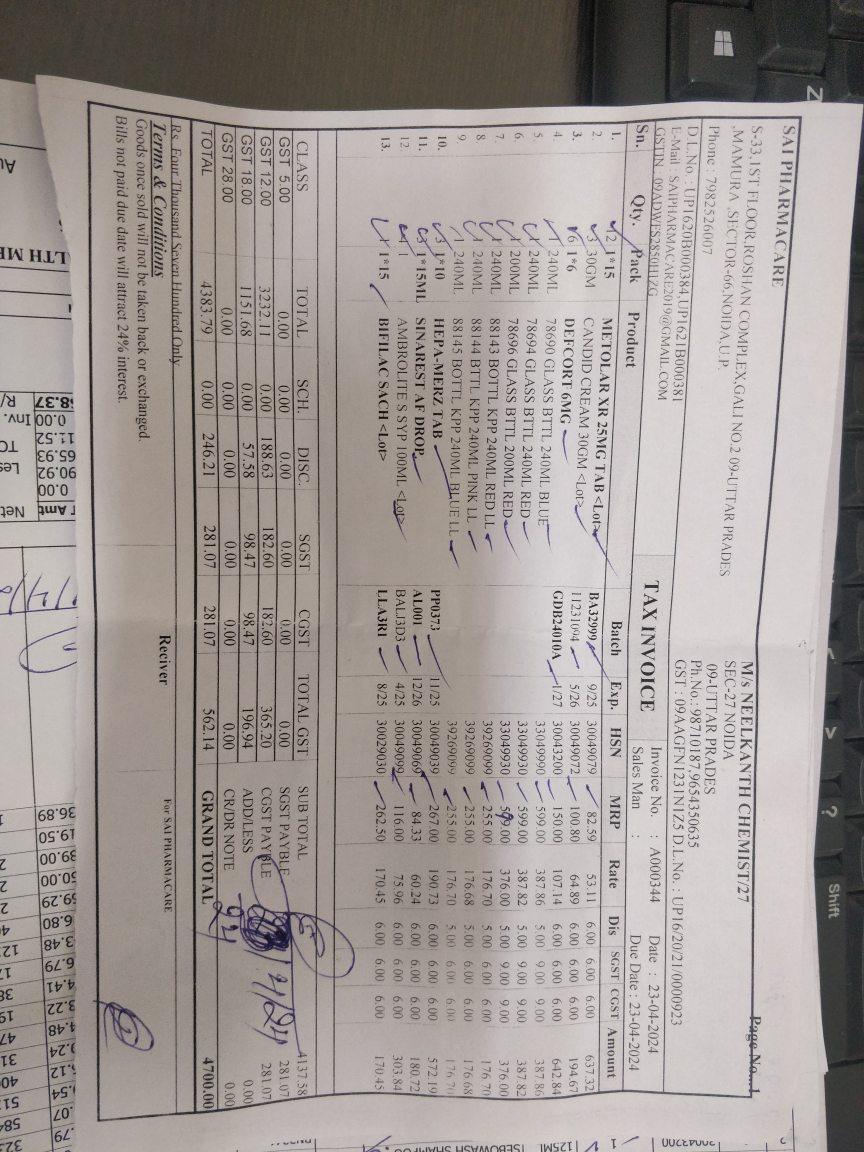 Page No...1
SAI PHARMACARE
S-33,1ST FLOOR,ROSHAN COMPLEX,GALI NO.2 09-UTTAR PRADES
,MAMURA ,SECTOR-66,NOIDA,U.P.
Phone : 7982526007
D.L.No. : UP1620B000384,UP1621B000381
E-Mail : SAIPHARMACARE2019@GMAIL.COM
GSTIN : 09ADWFS2850H1ZG
M/s NEELKANTH CHEMIST/27
SEC-27 NOIDA
09-UTTAR PRADES
Ph.No.: 98710187,9654350635
GST : 09AAGFN1231N1Z5 D.L.No. : UP16/20/21/0000923
TAX INVOICE
Invoice No. : A000344 Date : 23-04-2024
Sales Man : Due Date : 23-04-2024
Sn. Qty. Pack Product Batch Exp. HSN MRP Rate Dis SGST CGST Amount
1. 12 1*15 METOLAR XR 25MG TAB <Lot> BA32999 9/25 30049079 82.59 53.11 6.00 6.00 6.00 637.32
2. 3 30GM CANDID CREAM 30GM <Lot> 11231094 5/26 30049072 100.80 64.89 6.00 6.00 6.00 194.67
3. 6 1*6 DEFCORT 6MG GDB24010A 1/27 30043200 150.00 107.14 6.00 6.00 6.00 642.84
4. 1 240ML 78690 GLASS BTTL 240ML BLUE 33049990 599.00 387.86 5.00 9.00 9.00 387.86
5. 240ML 78694 GLASS BTTL 240ML RED 33049930 599.00 387.82 5.00 9.00 9.00 387.82
6. 200ML 78696 GLASS BTTL 200ML RED 33049930 599.00 376.00 5.00 9.00 9.00 376.00
7. 240ML 88143 BOTTL KPP 240ML RED LL 39269099 255.00 176.70 5.00 6.00 6.00 176.70
8 240ML 88144 BTTL KPP 240ML PINK LL 39269099 255.00 176.68 6.00 6.00 6.00 176.68
9. 1 240ML 88145 BOTTL KPP 240ML BLUE LL 39269099 255.00 176.70 5.00 6.00 6.00 176.70
10. 3 1*10 HEPA-MERZ TAB PP0373 11/25 30049039 267.00 190.73 6.00 6.00 6.00 572.19
11. 3 1*15ML SINAREST AF DROP AL001 12/26 30049069 84.33 60.24 6.00 6.00 6.00 180.72
12 4 1 AMBROLITE S SYP 100ML <Lot> BALI3D3 4/25 30049099 116.00 75.96 6.00 6.00 6.00 303.84
13. 1*15 BIFILAC SACH <Lot> LLA3R1 8/25 30029030 262.50 170.45 6.00 6.00 6.00 170.45
CLASS TOTAL SCH. DISC. SGST CGST TOTAL GST
GST 5.00 0.00 0.00 0.00 0.00 0.00 0.00
GST 12.00 3232.11 0.00 188.63 182.60 182.60 365.20
GST 18.00 1151.68 0.00 57.58 98.47 98.47 196.94
GST 28.00 0.00 0.00 0.00 0.00 0.00 0.00
TOTAL 4383.79 0.00 246.21 281.07 281.07 562.14
SUB TOTAL 4137.58
SGST PAYBLE 281.07
CGST PAYBLE 281.07
ADD/LESS 0.00
CR/DR NOTE 0.00
GRAND TOTAL 4700.00
Rs. Four Thousand Seven Hundred Only
Terms & Conditions
Goods once sold will not be taken back or exchanged.
Bills not paid due date will attract 24% interest.
Reciver
For SAI PHARMACARE